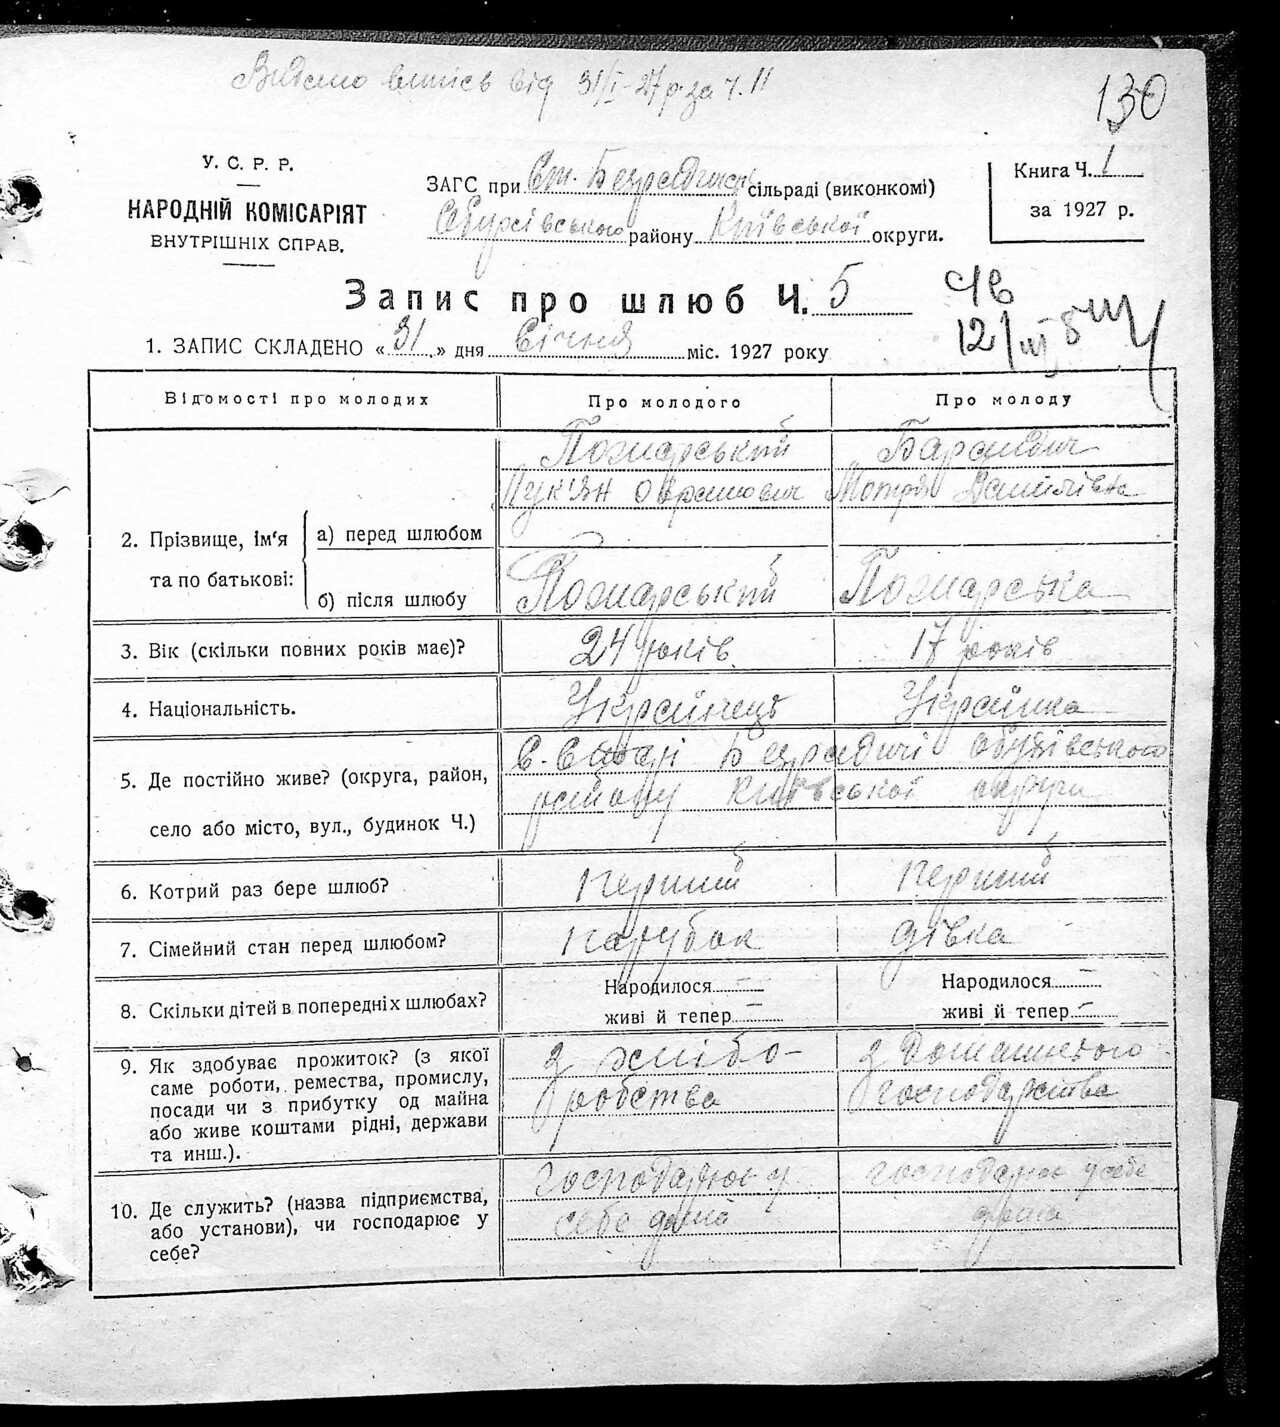 Видано випис від 31/I-27р. за ч. 11
130
У. С. Р. Р.
НАРОДНІЙ КОМІСАРІЯТ
ВНУТРІШНІХ СПРАВ.
ЗАГС при Ст. Безрадицьк. сільраді (виконкомі)
Обухівського району Київської округи.
Книга Ч. 1
за 1927 р.
Запис про шлюб Ч. 5
1. ЗАПИС СКЛАДЕНО «31» дня Січня міс. 1927 року
Відомості про молодих Про молодого Про молоду
Пожарський
Лук'ян Овра́мович
Мотря Данилівна
2. Прізвище, ім'я та по батькові:
а) перед шлюбом
б) після шлюбу
Пожарський Пожарська
3. Вік (скільки повних років має)? 24 років 17 років
4. Національність. Українець Українка
5. Де постійно живе? (округа, район,
село або місто, вул., будинок Ч.)
с. Старі Безрадичі Обухівського
району Київської округи
6. Котрий раз бере шлюб? перший перший
7. Сімейний стан перед шлюбом? парубок дівка
8. Скільки дітей в попередніх шлюбах?
Народилося — Народилося —
живі й тепер — живі й тепер —
9. Як здобуває прожиток? (з якої
саме роботи, ремества, промислу,
посади чи з прибутку од майна
або живе коштами рідні, держави
та инш.).
з хлібо-
робства
з домашнього
господарства
10. Де служить? (назва підприємства,
або установи), чи господарює у
себе?
господарює у
себе дома
господарює у себе
дома